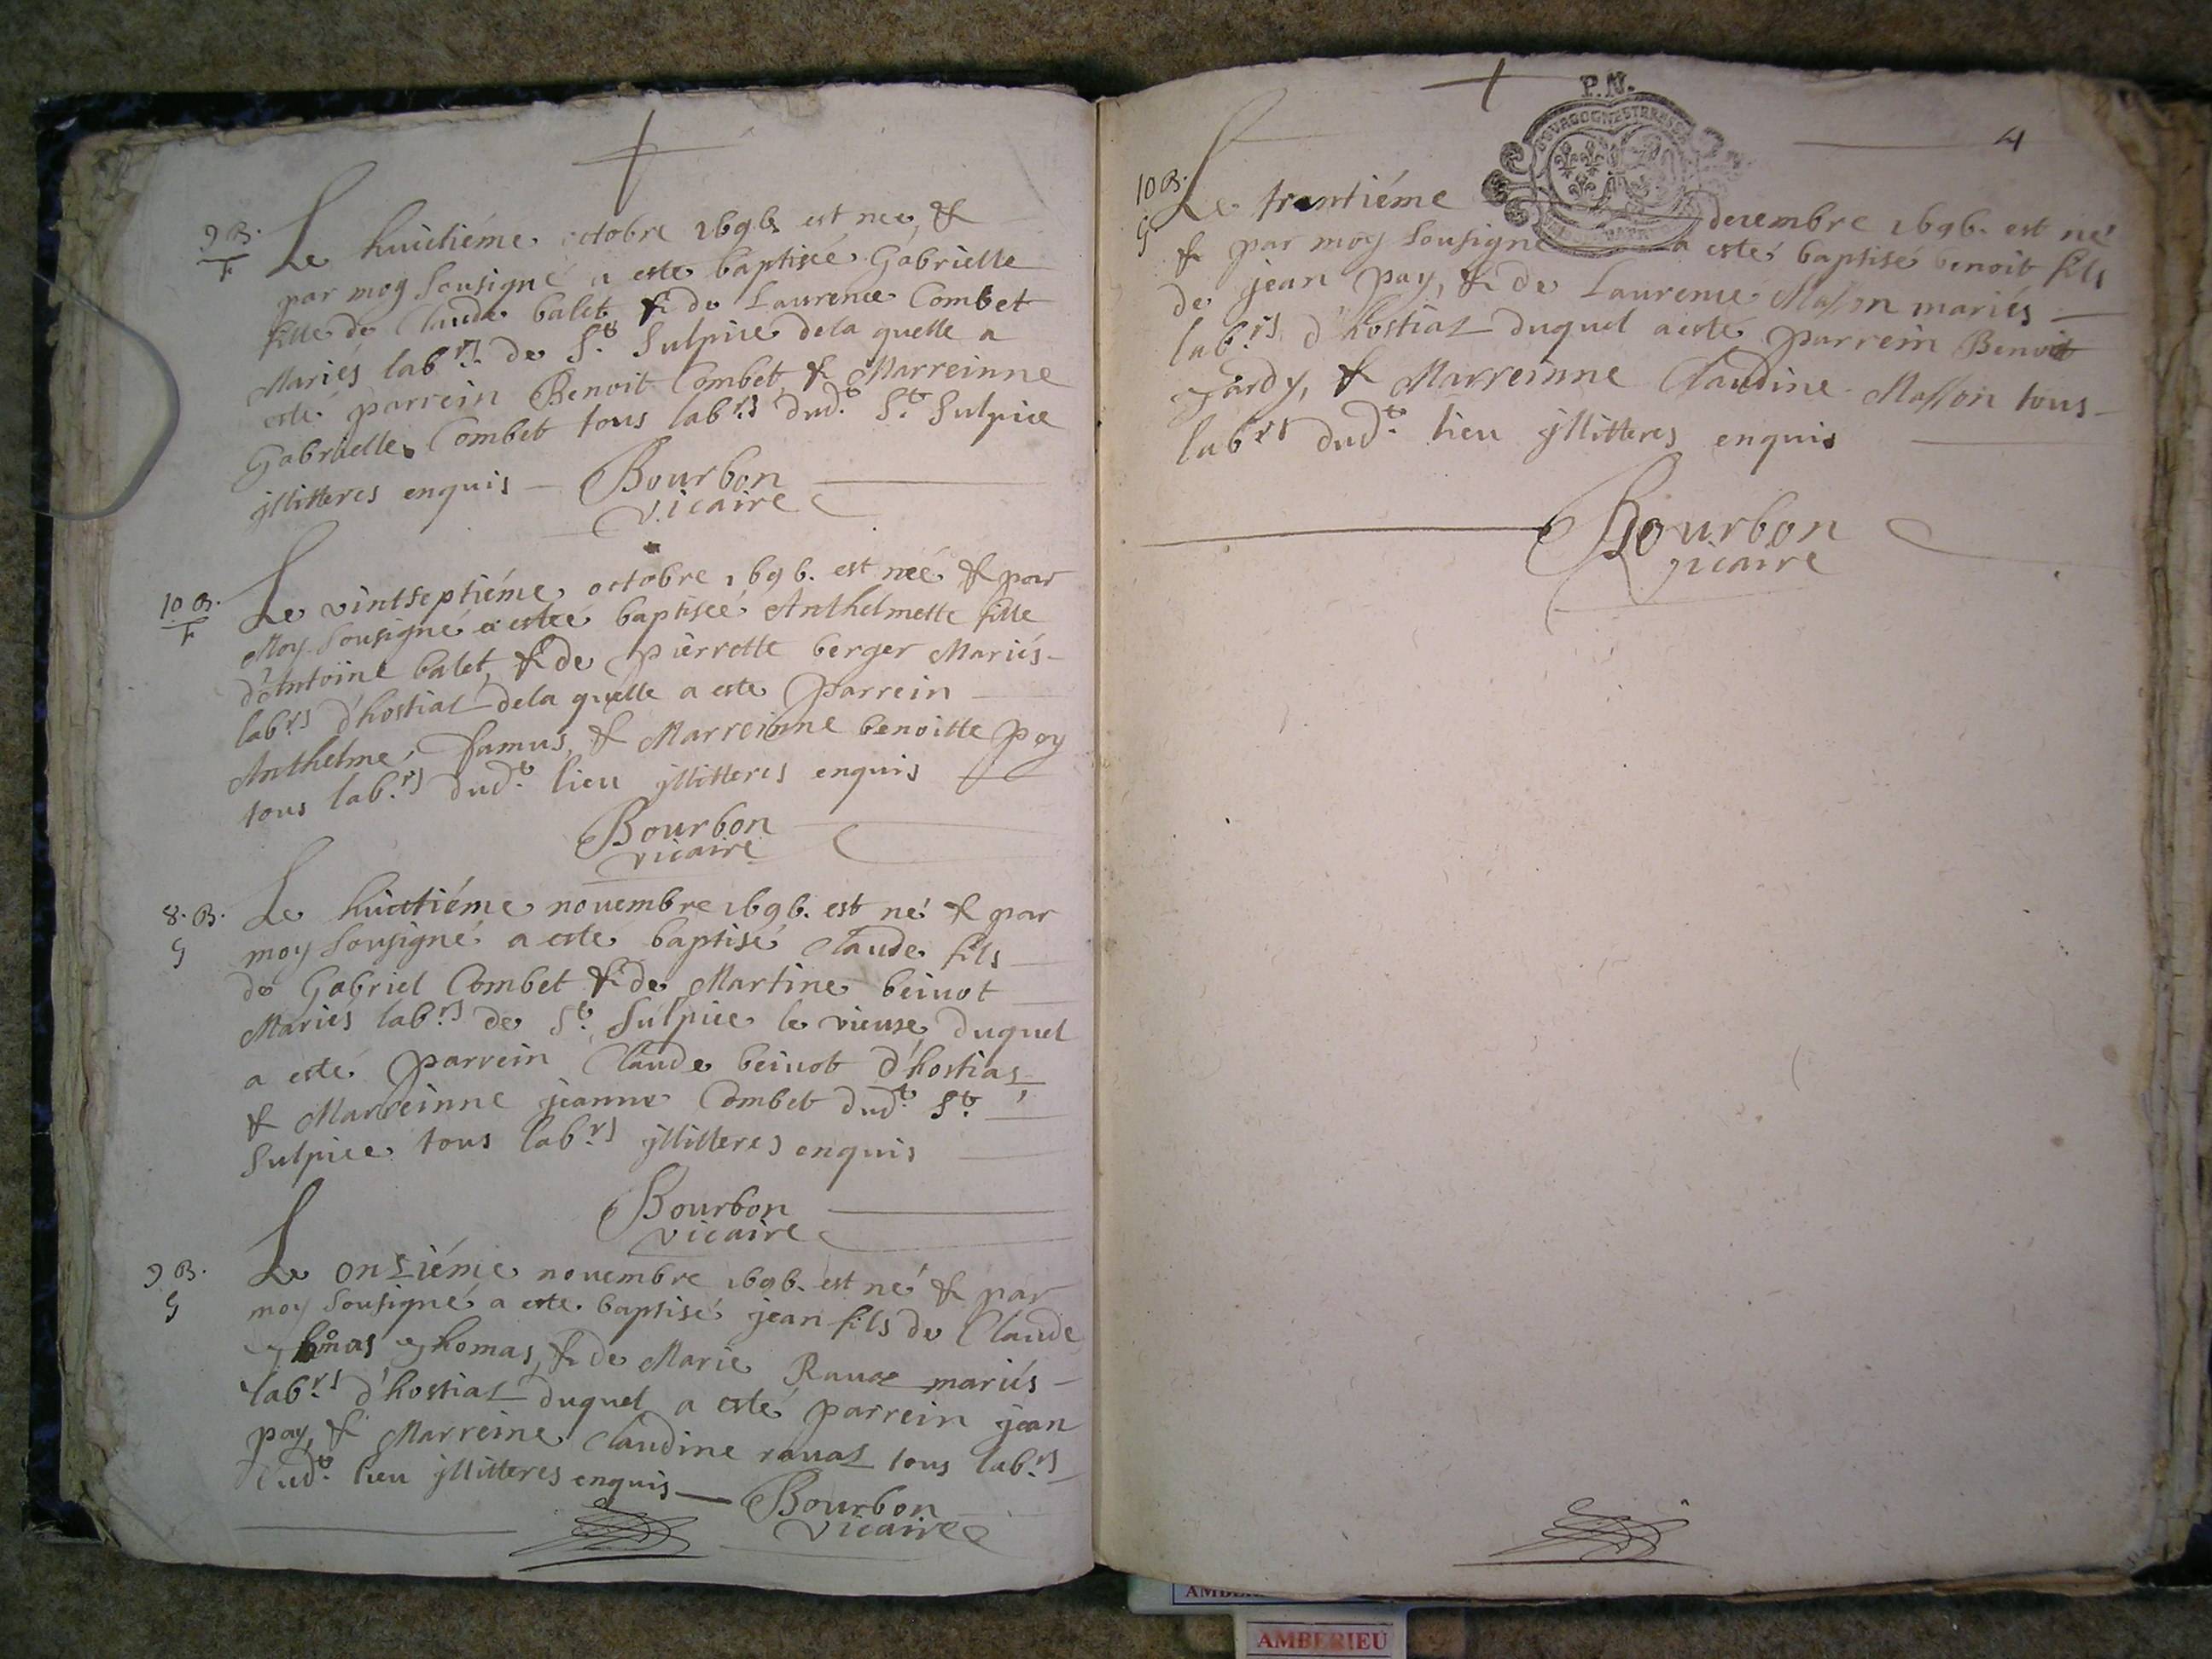 9 B.
F
Le huictiéme octobre 1696 est neé, &
par moy sousigné a esté baptiseé Gabrielle
fille de Claude balet & de Laurence Combet
Mariés lab.rs de S.t Sulpice dela quelle a
esté parrein Benoit Combet & Marreinne
Gabrielle Combet tous lab.rs dud.t S.t Sulpice
illitteres enquis — Bourbon
vicaire
10 B.
F
Le vintseptiéme octobre 1696. est neé & par
Moy sousigné a esteé baptiseé Anthelmette fille
d'Antoine balet, & de pierrette berger Mariés
lab.rs d'hostiaz dela quelle a esté parrein
Anthelme Jamus, & Marreinne benoitte pey
tous lab.rs dud.t lieu illitteres enquis
Bourbon
vicaire
8. B.
G
Le huictiéme novembre 1696. est né & par
moy sousigné a esté baptisé Claude fils
de Gabriel Combet & de Martine beivot
Mariés lab.rs de S.t Sulpice le vieux, duquel
a esté parrein Claude beivot d'hostiaz,
& Marreinne jeanne Combet dud.t S.t
Sulpice tous lab.rs illitteres enquis
Bourbon
vicaire
9 B.
G
Le onziéme novembre 1696. est né & par
moy sousigné a esté baptisé jean fils de Claude
Thomas, & de Marie Ravaz mariés
lab.rs d'hostiaz duquel a esté parrein jean
pay, & Marreine Claudine ravaz tous lab.rs
dud.t lieu illitteres enquis — Bourbon
vicaire
P.N.
4
10 B.
G
Le trentiéme decembre 1696. est né
& par moy sousigné a esté baptisé benoit fils
de jean pay, & de Laurence Masson mariés
lab.rs d'hostiaz duquel a esté parrein Benoit
Jardy, & Marreinne Claudine Masson tous
lab.rs dud.t lieu illitteres enquis
Bourbon
vicaire
AMBERIEU